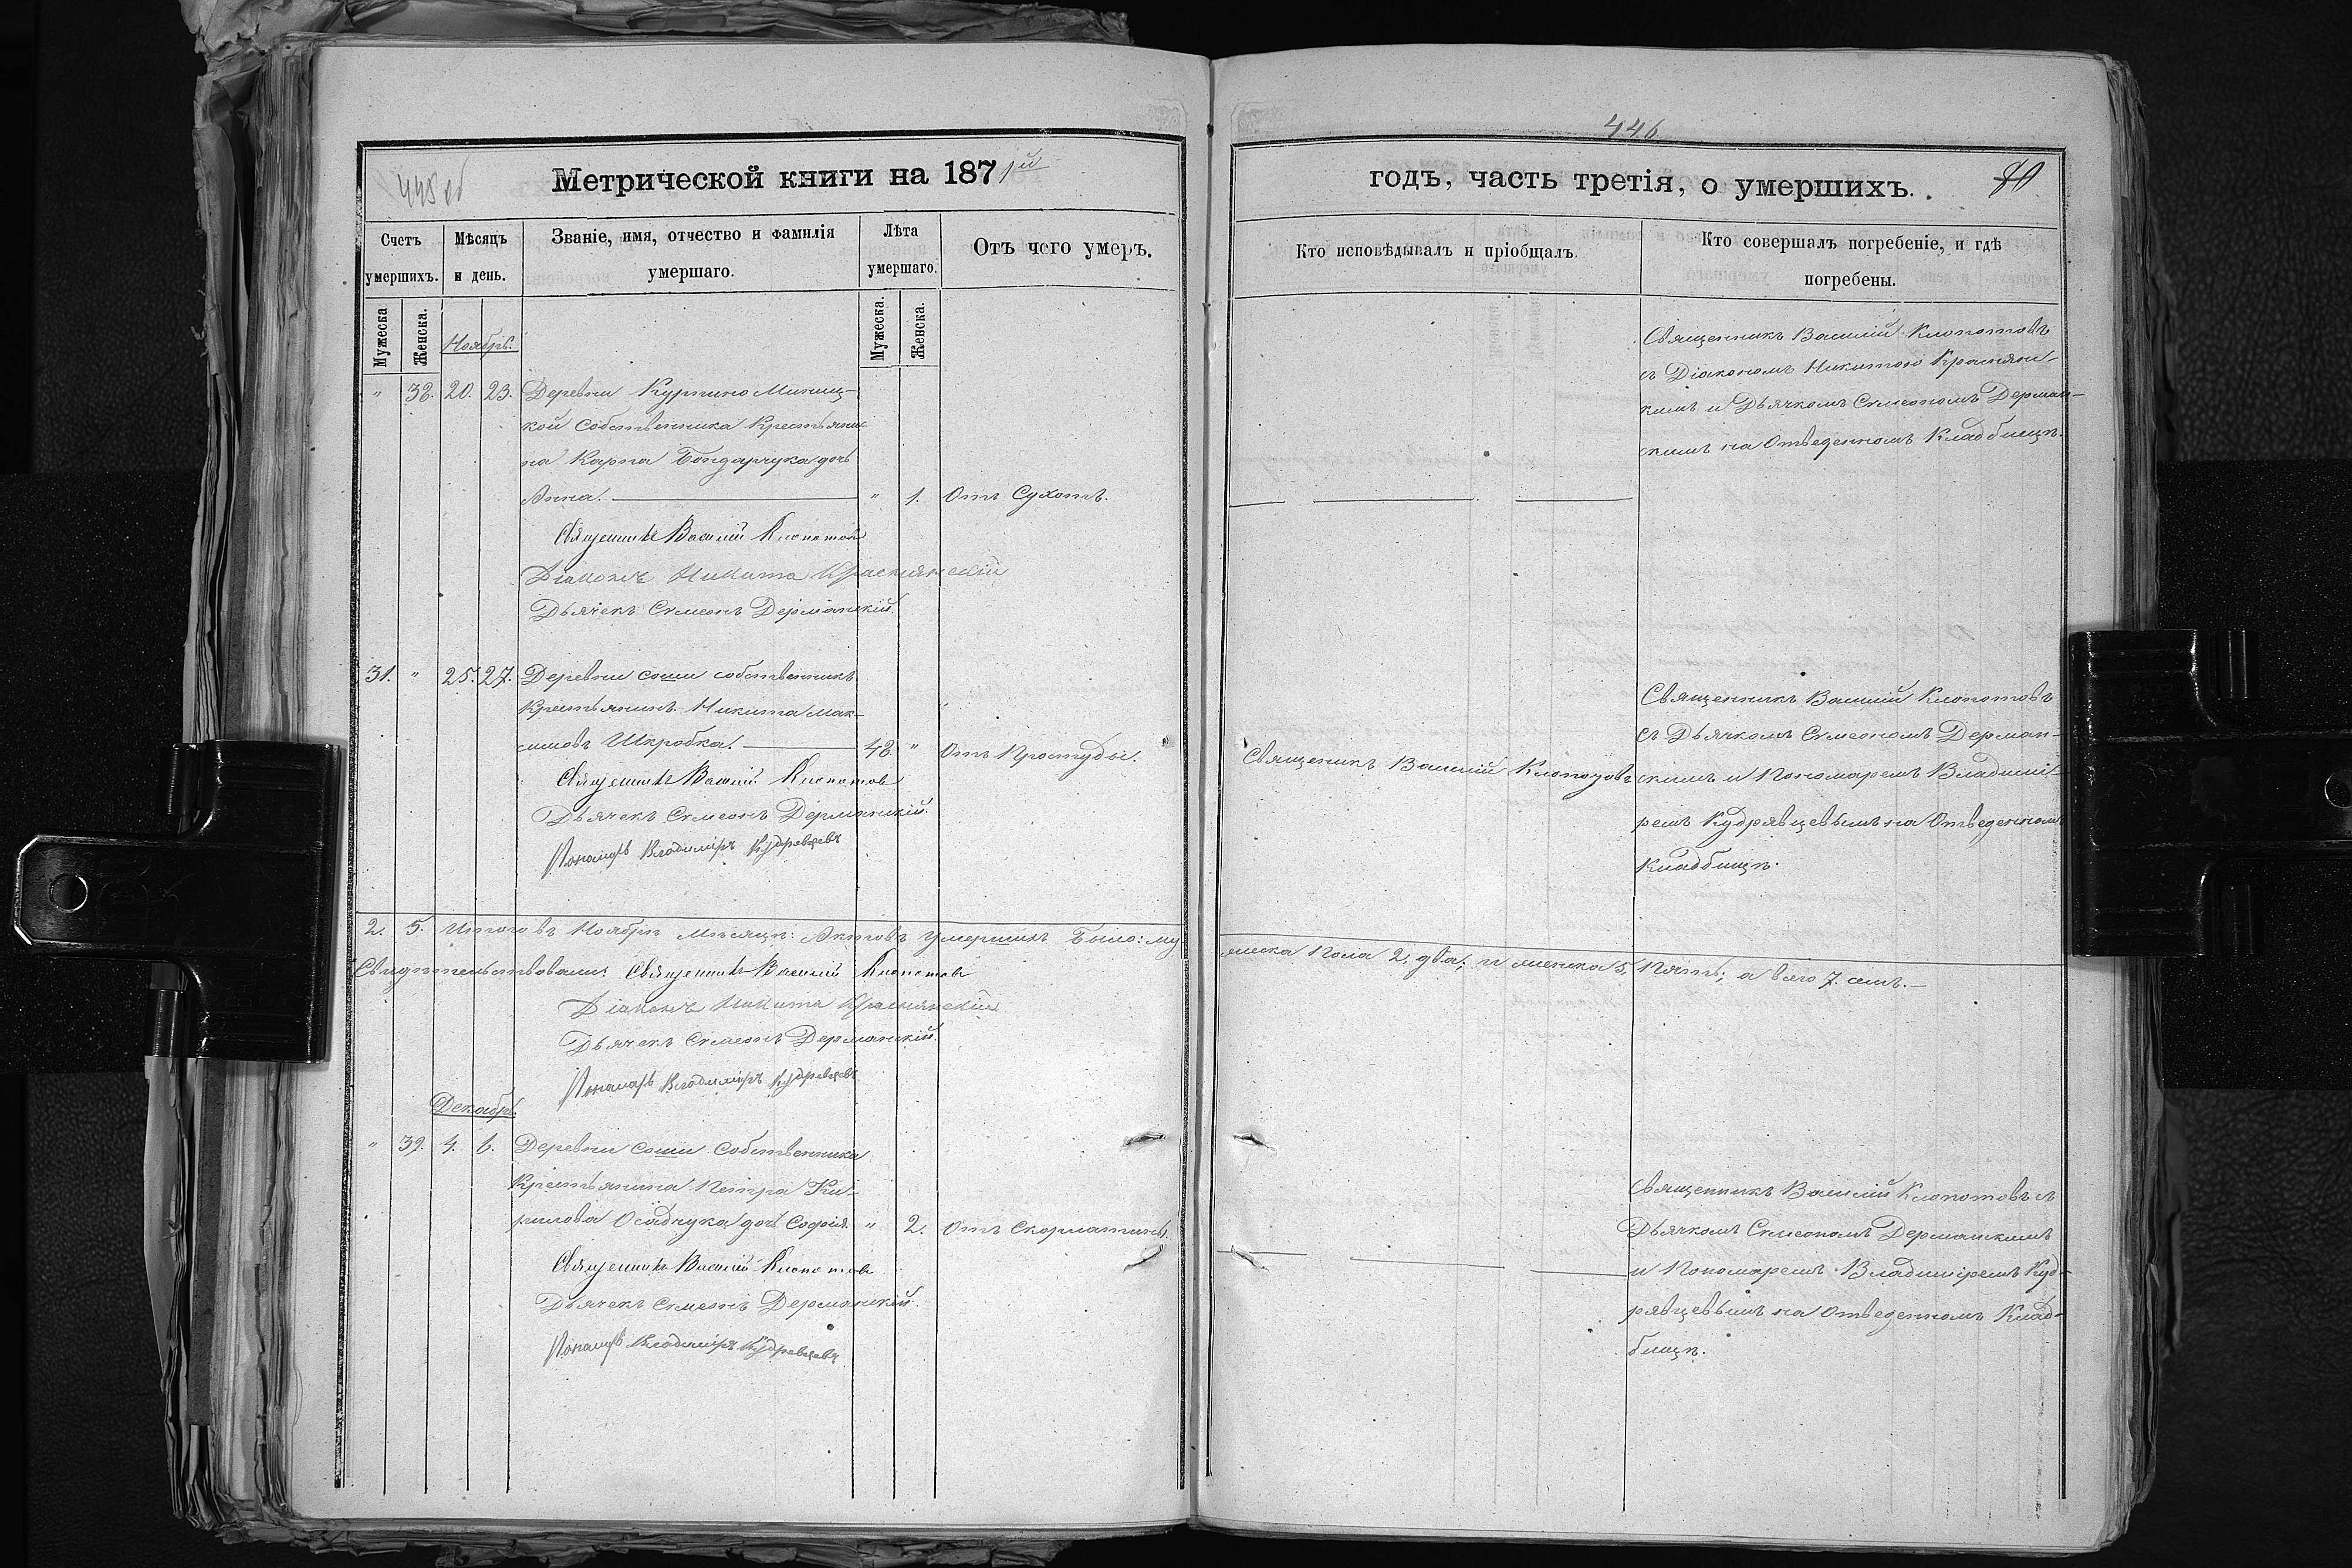 Метрической книги на 1871й
Счетъ умершихъ.
Мѣсяцъ и день.
Званіе, имя, отчество и фамилія умершаго.
Лѣта умершаго.
Отъ чего умеръ.
Мужеска
Женска.
Мужеска.
Женска.
Ноябрь.
" 38. 20. 23. Деревни
кой Собственника Крестьяни-
на Карпа Бондарчука дочь
Анна. " 1. Отъ Сухотъ.
Священникъ Василій Клопотовъ
Діаконъ Никита Краснянскій
Дьячекъ Симеонъ Дерманскій.
31. " 25. 27. Деревни Соши собственникъ
Крестьянинъ Никита Мак-
симовъ Шкробка. 48. " Отъ Простуды.
Священникъ Василій Клопотовъ
Дьячекъ Симеонъ Дерманскій.
Пономарь Владиміръ Кудрявцевъ
2. 5. Итого въ Ноябрѣ Мѣсяцѣ: Актовъ Умершихъ Было: му-
Свидѣтельствовали: Священникъ Василій Клопотовъ
Діаконъ Никита Краснянскій
Дьячекъ Симеонъ Дерманскій.
Пономарь Владиміръ Кудрявцевъ
Декабрь.
" 39. 4. 6. Деревни Соши Собственника
Крестьянина Петра Ки-
рилова Осадчука дочь Софія. " 2. Отъ Скорлатины.
Священникъ Василій Клопотовъ
Дьячекъ Симеонъ Дерманскій.
Пономарь Владиміръ Кудрявцевъ
446
годъ, часть третія, о умершихъ.
Кто исповѣдывалъ и пріобщалъ.
Кто совершалъ погребеніе, и гдѣ погребены.
Священникъ Василій Клопотовъ
съ Діакономъ Никитою Краснян-
скимъ и Дьячкомъ Симеономъ Дерман-
скимъ на Отведенномъ Кладбищѣ.
Священникъ Василій Клопотовъ
Священникъ Василій Клопотовъ
съ Дьячкомъ Симеономъ Дерман-
скимъ и Пономаремъ Владимі-
ремъ Кудрявцевымъ на Отведенномъ
Кладбищѣ.
жеска Пола 2. два; и женска 5, Пять; а всего 7. семъ.
Священникъ Василій Клопотовъ съ
Дьячкомъ Симеономъ Дерманскимъ
и Пономаремъ Владиміремъ Куд-
рявцевымъ на Отведенномъ Клад-
бищѣ.